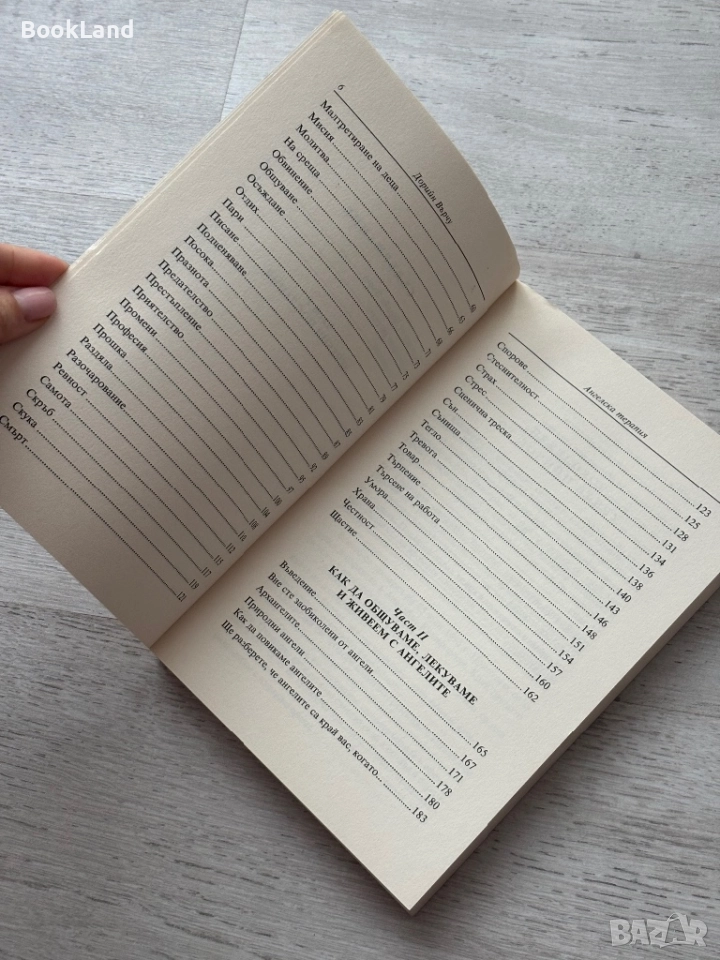 BookLand
6
Дорийн Върчу
Малтретиране на деца
Мисия
Молитва
На среща
Обвинение
Общуване
Осъждане
Отдих
Пари
Писане
Подценяване
Посока
Празнота
Предателство
Престъпление
Приятелство
Промени
Професия
Прошка
Раздяла
Разочарование
Ревност.....112
Самота.....115
Скръб.....117
Скука.....119
Смърт.....121
Ангелска терапия
Спорове.....123
Стеснителност.....125
Страх.....128
Стрес.....131
Сценична треска.....134
Сън.....136
Сънища.....138
Тегло.....140
Тревога.....143
Товар.....146
Търпение.....148
Търсене на работа.....151
Умора.....154
Храна.....157
Честност.....160
Щастие.....162
Част II
КАК ДА ОБЩУВАМЕ, ЛЕКУВАМЕ
И ЖИВЕЕМ С АНГЕЛИТЕ
Въведение.....165
Вие сте заобиколени от ангели.....167
Архангелите.....171
Природни ангели.....178
Как да повикаме ангелите.....180
Ще разберете, че ангелите са край вас, когато... .....183
BAZAR